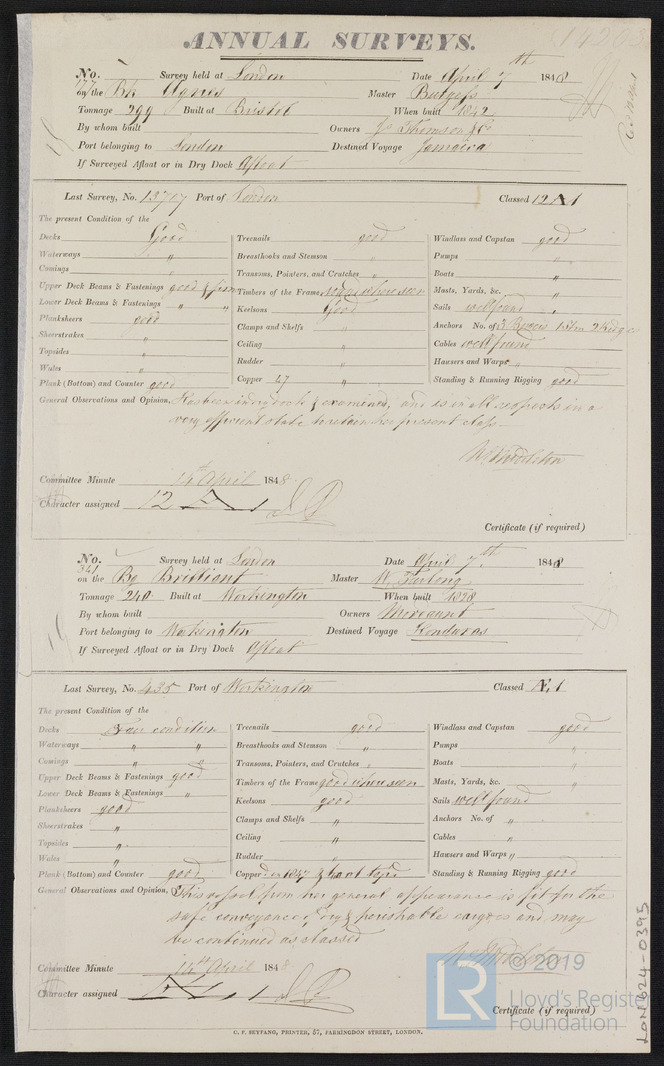 ANNUAL SURVEYS.
No. 177 Survey held at London Date April 7th 1848
on the Bk Agnes Master Burgess
Tonnage 299 Built at Bristol When built 1842
By whom built Owners J. Thomson & Co
Port belonging to London Destined Voyage Jamaica
If Surveyed Afloat or in Dry Dock Afloat
Last Survey, No. 13707 Port of London Classed 12 A 1
The present Condition of the
Decks Good
Waterways "
Comings "
Upper Deck Beams & Fastenings good & firm
Lower Deck Beams & Fastenings " "
Planksheers good
Sheerstrakes "
Topsides "
Wales "
Plank (Bottom) and Counter good
Treenails good
Breasthooks and Stemson "
Transoms, Pointers, and Crutches "
Timbers of the Frame sound where seen
Keelsons Good
Clamps and Shelfs "
Ceiling "
Rudder "
Copper 47 "
Windlass and Capstan good
Pumps "
Boats "
Masts, Yards, &c. "
Sails well found
Anchors No. of 3 Bowers 1 Stm 2 Kedge
Cables well found
Hausers and Warps "
Standing & Running Rigging good
General Observations and Opinion. Has been in dry dock & examined, and is in all respects in a
very efficient state to retain her present class.
W. Middleton
Committee Minute 14th April 1848
Character assigned 12 A 1
Certificate (if required)
No. 341 Survey held at London Date April 7th 1848
on the Bg Brilliant Master W. Furlong
Tonnage 240 Built at Workington When built 1828
By whom built Owners Mordaunt
Port belonging to Workington Destined Voyage Honduras
If Surveyed Afloat or in Dry Dock Afloat
Last Survey, No. 435 Port of Workington Classed Æ 1
The present Condition of the
Decks Fair condition
Waterways " "
Comings " "
Upper Deck Beams & Fastenings good
Lower Deck Beams & Fastenings "
Planksheers good
Sheerstrakes "
Topsides "
Wales "
Plank (Bottom) and Counter good
Treenails good
Breasthooks and Stemson "
Transoms, Pointers, and Crutches "
Timbers of the Frame good where seen
Keelsons good
Clamps and Shelfs "
Ceiling "
Rudder "
Copper 1847
Windlass and Capstan good
Pumps "
Boats "
Masts, Yards, &c. "
Sails well found
Anchors No. of "
Cables "
Hausers and Warps "
Standing & Running Rigging good
General Observations and Opinion. This vessel from her general appearance is fit for the
safe conveyance of dry & perishable cargoes and may
be continued as classed
W. Middleton
Committee Minute 14th April 1848
Character assigned Æ 1
Certificate (if required)
C. F. SEYFANG, PRINTER, 57, FARRINGDON STREET, LONDON.
LON624-0395
LR
© 2019
Lloyd's Register
Foundation